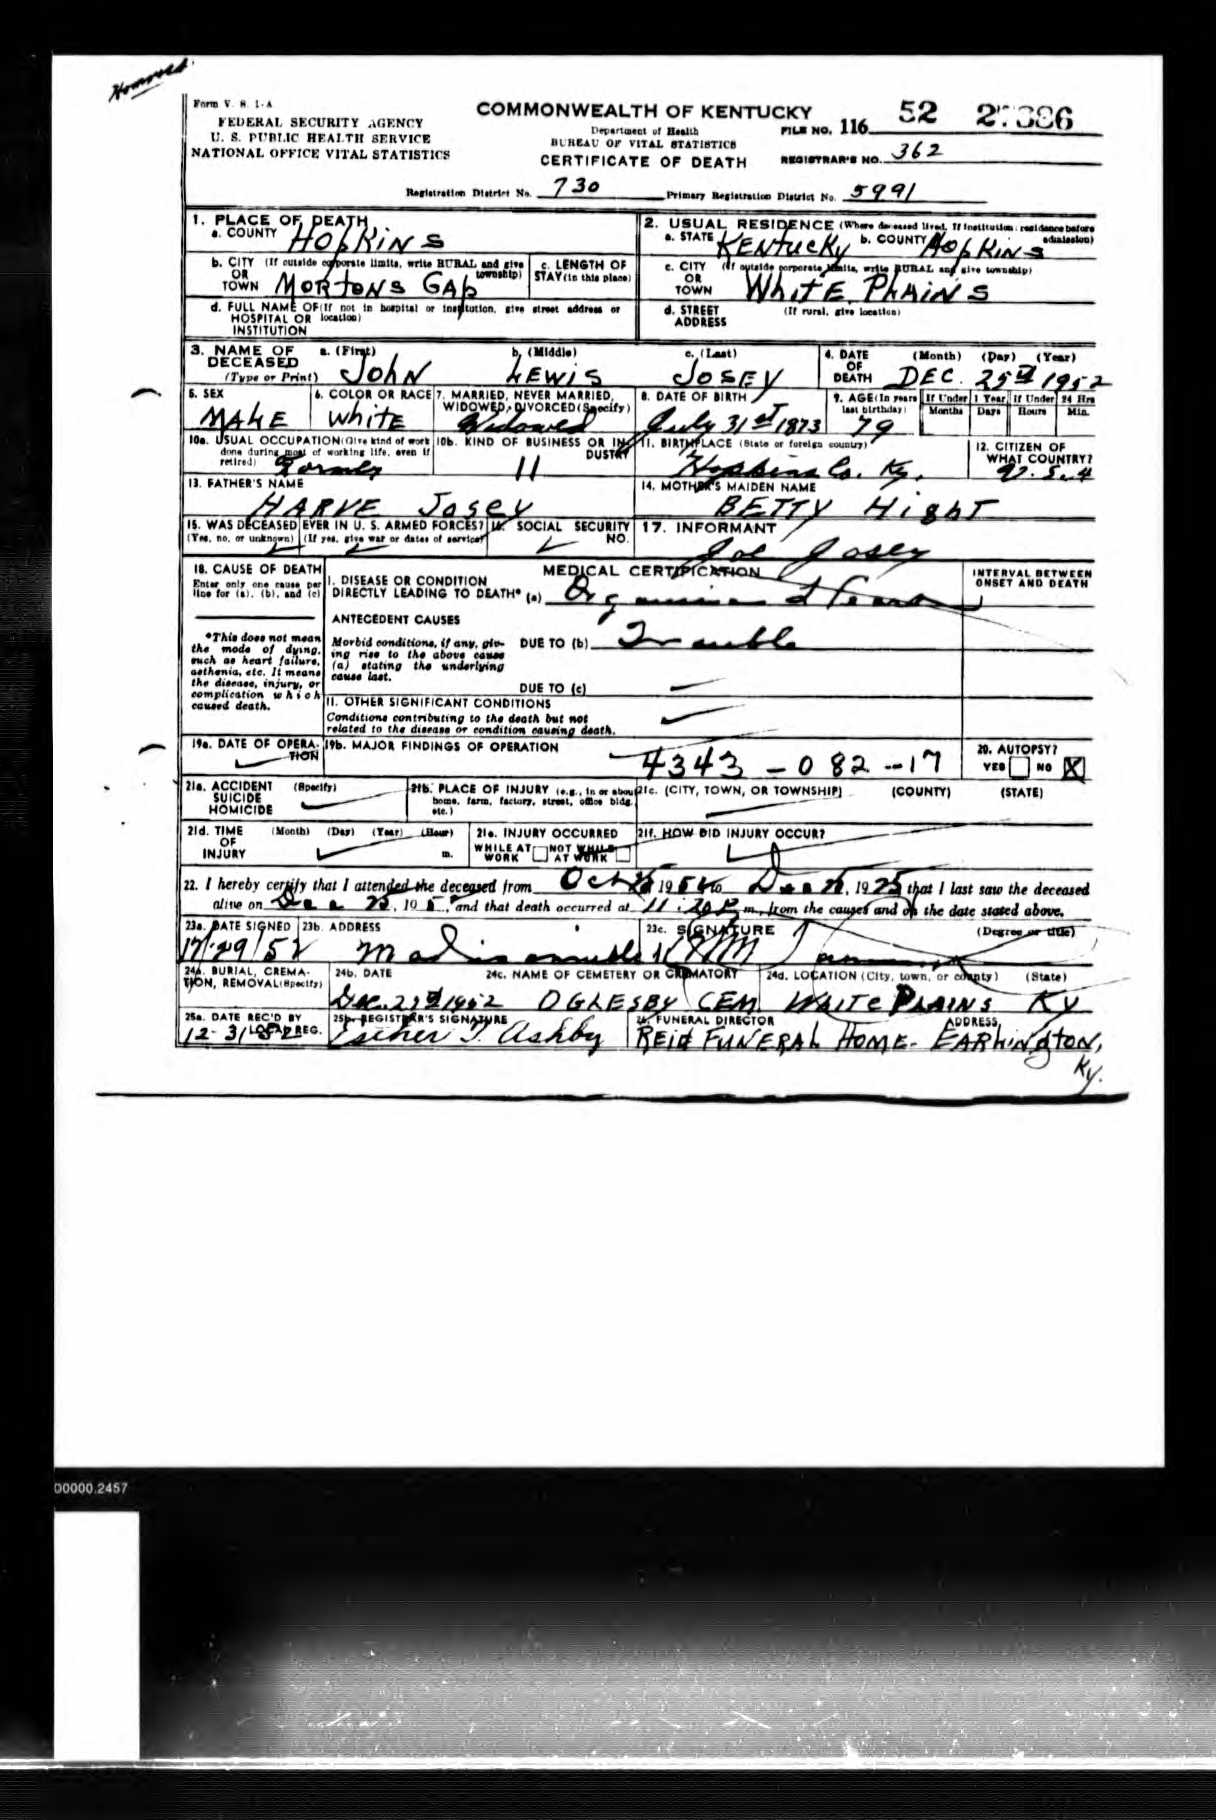 Form V. S. 1-A
FEDERAL SECURITY AGENCY
U. S. PUBLIC HEALTH SERVICE
NATIONAL OFFICE VITAL STATISTICS
COMMONWEALTH OF KENTUCKY
Department of Health
BUREAU OF VITAL STATISTICS
CERTIFICATE OF DEATH
FILE NO. 116 52
REGISTRAR'S NO. 362
Registration District No. 730 Primary Registration District No. 5991
1. PLACE OF DEATH
a. COUNTY HOPKINS
2. USUAL RESIDENCE (Where deceased lived. If institution: residence before admission)
a. STATE KENTUCKY b. COUNTY HOPKINS
b. CITY (If outside corporate limits, write RURAL and give township)
OR
TOWN MORTONS GAP
c. LENGTH OF
STAY (in this place)
c. CITY (If outside corporate limits, write RURAL and give township)
OR
TOWN WHITE PLAINS
d. FULL NAME OF (If not in hospital or institution, give street address or location)
HOSPITAL OR
INSTITUTION
d. STREET (If rural, give location)
ADDRESS
3. NAME OF DECEASED (Type or Print)
a. (First) JOHN b. (Middle) LEWIS c. (Last) JOSEY
4. DATE OF DEATH (Month) (Day) (Year)
DEC. 25th 1952
5. SEX MALE
6. COLOR OR RACE White
7. MARRIED, NEVER MARRIED, WIDOWED, DIVORCED (Specify) Widowed
8. DATE OF BIRTH July 31st 1873
9. AGE (In years last birthday) 79
If Under 1 Year Months Days
If Under 24 Hrs Hours Min.
10a. USUAL OCCUPATION (Give kind of work done during most of working life, even if retired) Farmer
10b. KIND OF BUSINESS OR INDUSTRY 11
11. BIRTHPLACE (State or foreign country) Hopkins Co. Ky.
12. CITIZEN OF WHAT COUNTRY? U. S. A
13. FATHER'S NAME
HARVE JOSEY
14. MOTHER'S MAIDEN NAME
BETTY HIGHT
15. WAS DECEASED EVER IN U. S. ARMED FORCES?
(Yes, no, or unknown) (If yes, give war or dates of service)
16. SOCIAL SECURITY NO.
17. INFORMANT
Joe Josey
18. CAUSE OF DEATH
Enter only one cause per line for (a), (b), and (c)
MEDICAL CERTIFICATION
INTERVAL BETWEEN ONSET AND DEATH
I. DISEASE OR CONDITION
DIRECTLY LEADING TO DEATH* (a) Heart
ANTECEDENT CAUSES
*This does not mean the mode of dying, such as heart failure, asthenia, etc. It means the disease, injury, or complication which caused death.
Morbid conditions, if any, giving rise to the above cause (a) stating the underlying cause last.
DUE TO (b) Trouble
DUE TO (c)
II. OTHER SIGNIFICANT CONDITIONS
Conditions contributing to the death but not related to the disease or condition causing death.
19a. DATE OF OPERATION
19b. MAJOR FINDINGS OF OPERATION
4343 - 082 - 17
20. AUTOPSY?
YES NO X
21a. ACCIDENT (Specify)
SUICIDE
HOMICIDE
21b. PLACE OF INJURY (e.g., in or about home, farm, factory, street, office bldg. etc.)
21c. (CITY, TOWN, OR TOWNSHIP) (COUNTY) (STATE)
21d. TIME OF INJURY (Month) (Day) (Year) (Hour) m.
21e. INJURY OCCURRED
WHILE AT WORK NOT WHILE AT WORK
21f. HOW DID INJURY OCCUR?
22. I hereby certify that I attended the deceased from Oct , 19 to Dec , 19 that I last saw the deceased
alive on Dec 25, 195 , and that death occurred at 11:20 P m., from the causes and on the date stated above.
23a. DATE SIGNED 12/29/52
23b. ADDRESS Madisonville Ky
23c. SIGNATURE (Degree or title)
24a. BURIAL, CREMATION, REMOVAL (Specify)
24b. DATE Dec. 1952
24c. NAME OF CEMETERY OR CREMATORY OGLESBY CEM.
24d. LOCATION (City, town, or county) (State) WHITE PLAINS KY
25a. DATE REC'D BY LOCAL REG. 12-31-52
25b. REGISTRAR'S SIGNATURE Esther T. Ashby
26. FUNERAL DIRECTOR ADDRESS
REID FUNERAL HOME - EARLINGTON, Ky.
00000.2457